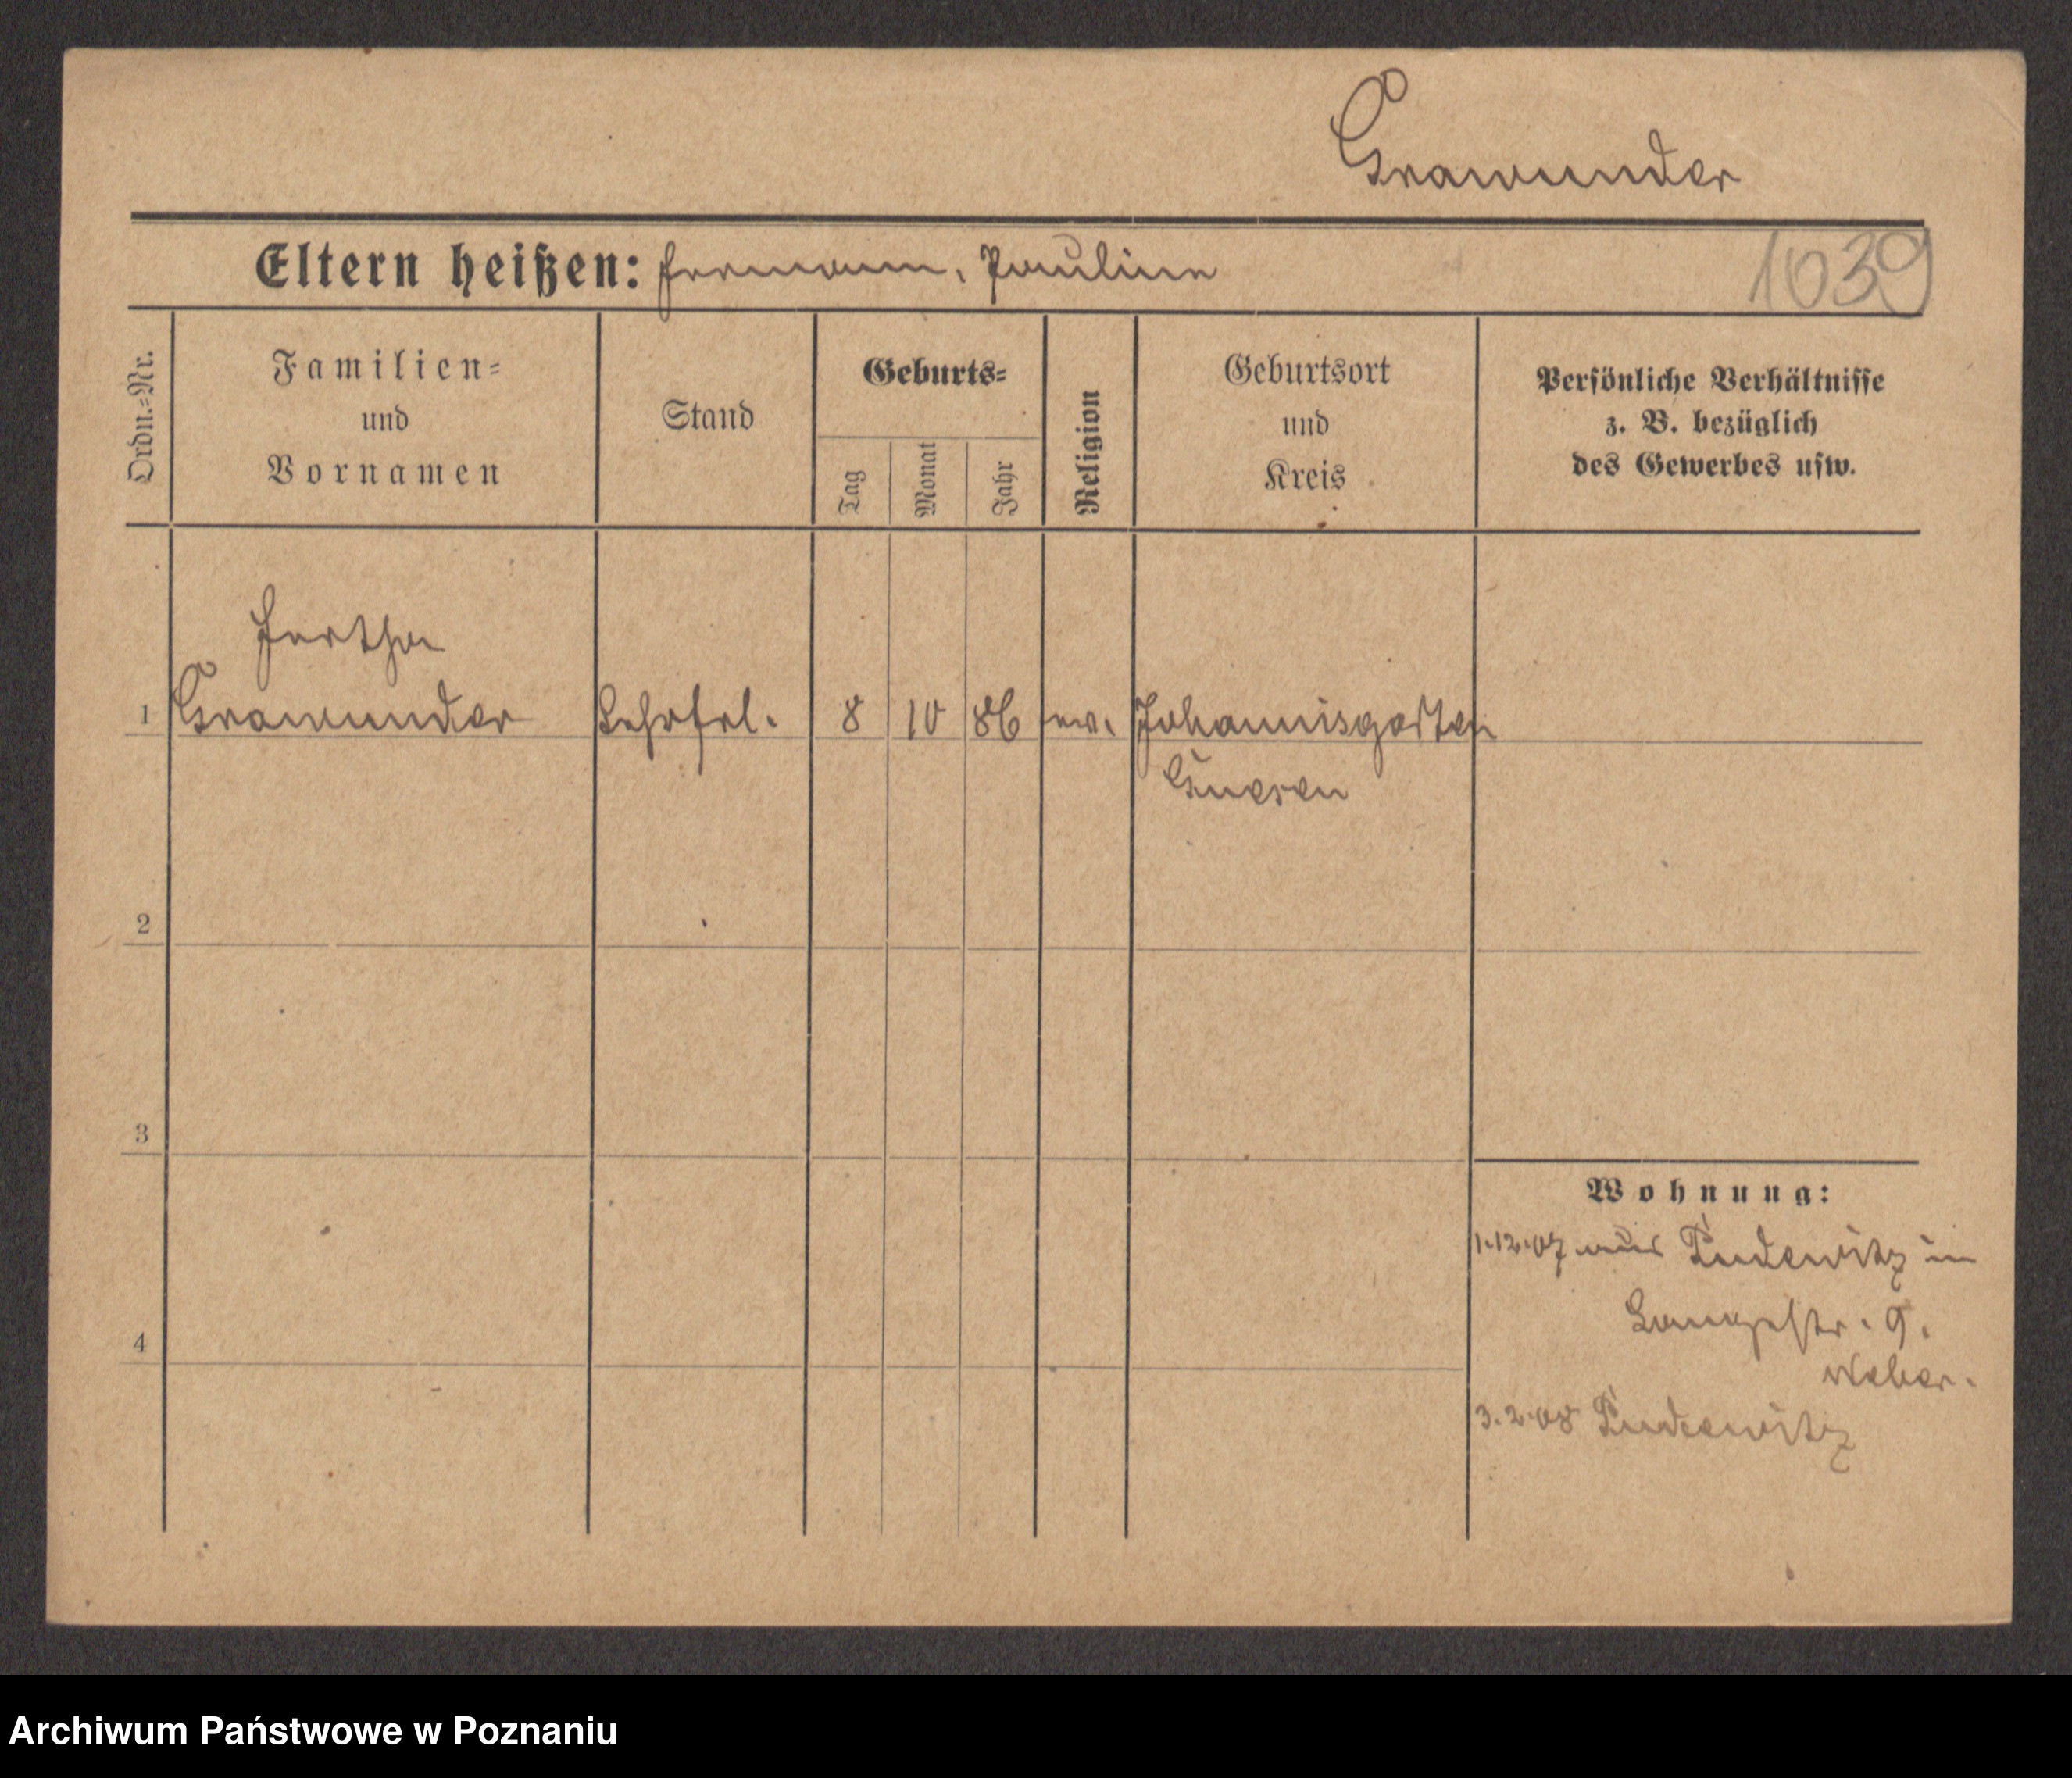 Grawunder
Eltern heißen: Hermann, Pauline
1039
Ordn.-Nr.
Familien-
und
Vornamen
Stand
Geburts-
Tag
Monat
Jahr
Religion
Geburtsort
und
Kreis
Persönliche Verhältnisse
z. B. bezüglich
des Gewerbes usw.
Hertha
1 Grawunder Lehrfrl. 8 10 86 ev. Johannisgarten
Gnesen
2
3
Wohnung:
1.12.07 aus Pudewitz in
Langestr. 9.
4
Weber.
3.2.08 Pudewitz
Archiwum Państwowe w Poznaniu